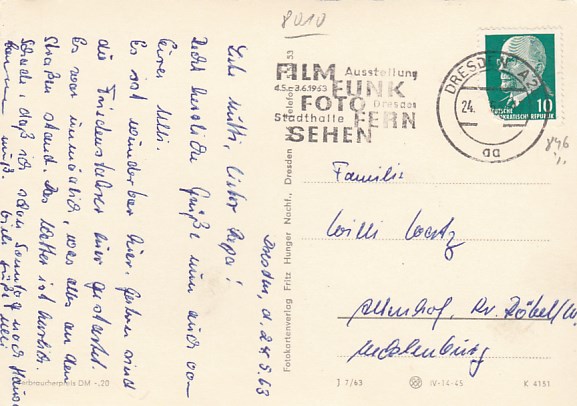 8010
Dresden, d. 24.5.63
Liebe Mutti, lieber Papa!
Recht herzliche Grüße nun auch von
Eurer Meli.
Es ist wunderbar hier. Gestern sind
die Friedensfahrer hier gestartet.
Es war unmöglich, was alles an den
Straßen stand. Das Wetter ist herrlich.
Schade, daß ich schon Sonntag nach Hause
muß. Viele Grüße Meli
Verbraucherpreis DM -,20
Fotokartenverlag Fritz Hunger Nachf., Dresden
Telefon
53
FILM Ausstellung
4.5.-3.6.1963 FUNK
FOTO Dresden
Stadthalle FERN
SEHEN
DRESDEN A
24.
aa
10
DEUTSCHE
DEMOKRATISCHE REPUBLIK
846
Familie
Willi
Altenhof, Kr. Röbel/
Mecklenburg
J 7/63
IV-14-45
K 4151